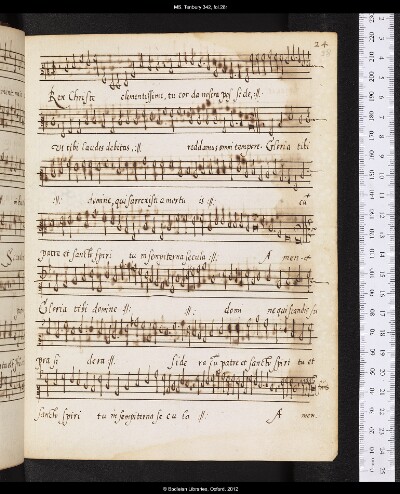 MS. Tenbury 342, fol.28r
24
Rex Christe clementissime, tu cor da nostra possi de, :||:
Vt tibi laudes debitas, :||: reddamus omni tempore. Gloria tibi
:||: domine, qui surrexisti a mortu is :||: cū
patre et sancto spiri tu in sempiterna secula :||: A men.
Gloria tibi domine :||: :||: domi ne qui scandis su
pra si dera :||: side ra cū patre et sancto spiri tu et
sancto spiri tu in sempiterna se cu la :||: A men.
© Bodleian Libraries, Oxford, 2012